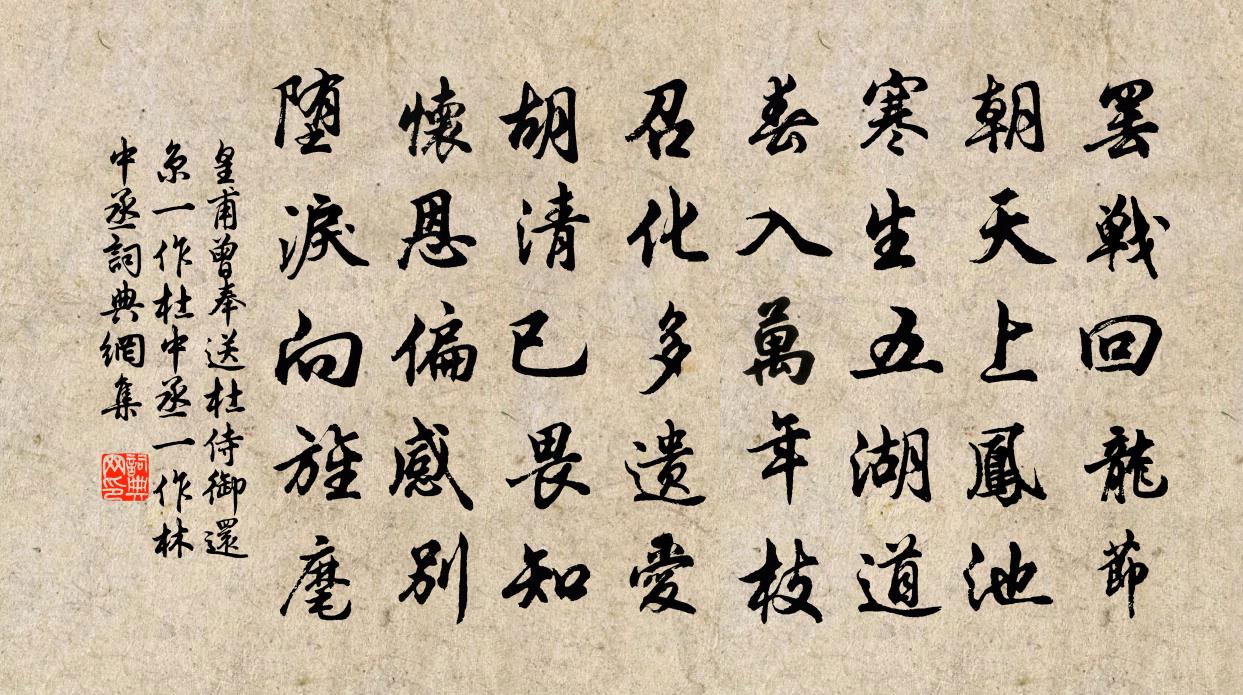 罢戰回龍節
朝天上鳳池
寒生五湖道
春入萬年枝
召化多遗愛
胡清已畏知
懷恩偏感別
堕淚向旌麾
皇甫曾奉送杜侍御還
京一作杜中丞一作林
中丞詞典網集
詞典
网印